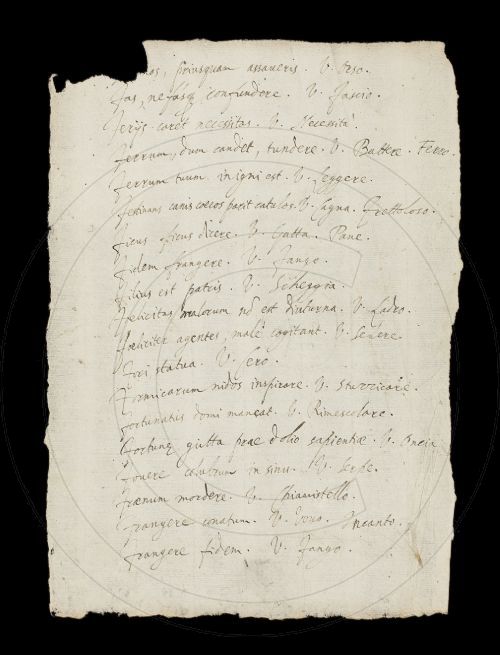 priusquam assaveris. V. Orso.
Fas, nefasq confundere. V. Fascio.
Ferijs caret necessitas. V. Necessità.
Ferrum, dum candet, tundere. V. Battere. Ferro.
Ferrum tuum in igni est. V. Leggere.
Festinans canis coecos parit catulos. V. Cagna. Frettoloso.
Ficus ficus dicere. V. Gatta. Pane.
Fidem frangere. V. Fango.
Filius est patris. V. Scheggia.
Foelicitas malorum nō est diuturna. V. Ladro.
Foeliciter agentes, malè cogitant. V.
Fori statua. V. Sero.
Formicarum nidos inspirare. V. Stuzzicare.
Fortunatis domi maneat. V. Rimescolare.
Fortunę gutta prae dolio sapientiæ. V. Oncia
Fovere colubrum in sinu. V. Serpe.
Frænum mordere. V. Chiavistello.
Frangere conatum. V. Uovo. Incanto.
Frangere fidem. V. Fango.